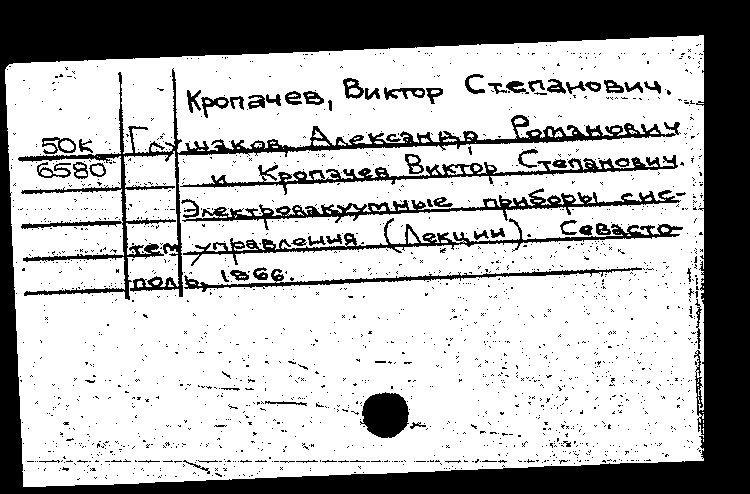 Кропачев, Виктор Степанович.
50к Глушаков, Александр Романович
6580 и Кропачев, Виктор Степанович.
Электровакуумные приборы сис-
тем управления (Лекции). Севасто-
поль, 1966.